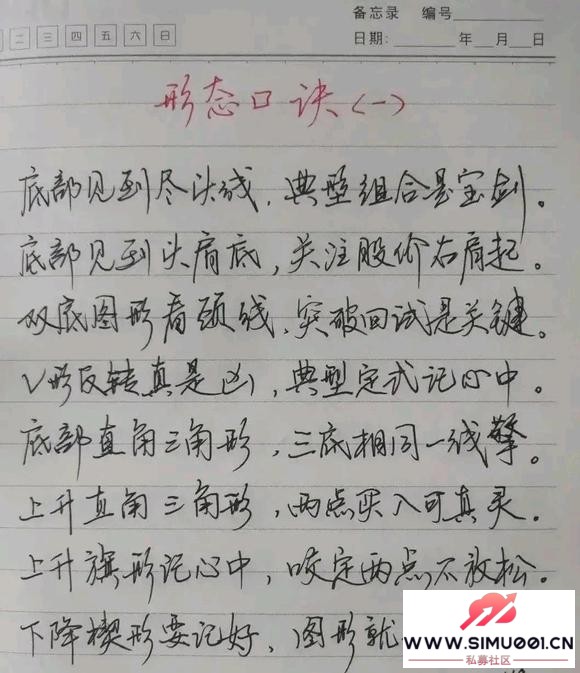 备忘录 编号
二 三 四 五 六 日
日期: 年 月 日
形态口诀(一)
底部见到尽头线,典型组合是宝剑。
底部见到头肩底,关注股价右肩起。
双底图形看颈线,突破回试是关键。
V形反转真是凶,典型定式记心中。
底部直角三角形,三底相同一线擎。
上升直角三角形,两点买入可真灵。
上升旗形记心中,咬定两点不放松。
下降楔形要记好,图形就
WWW.SIMU001.CN
私募社区